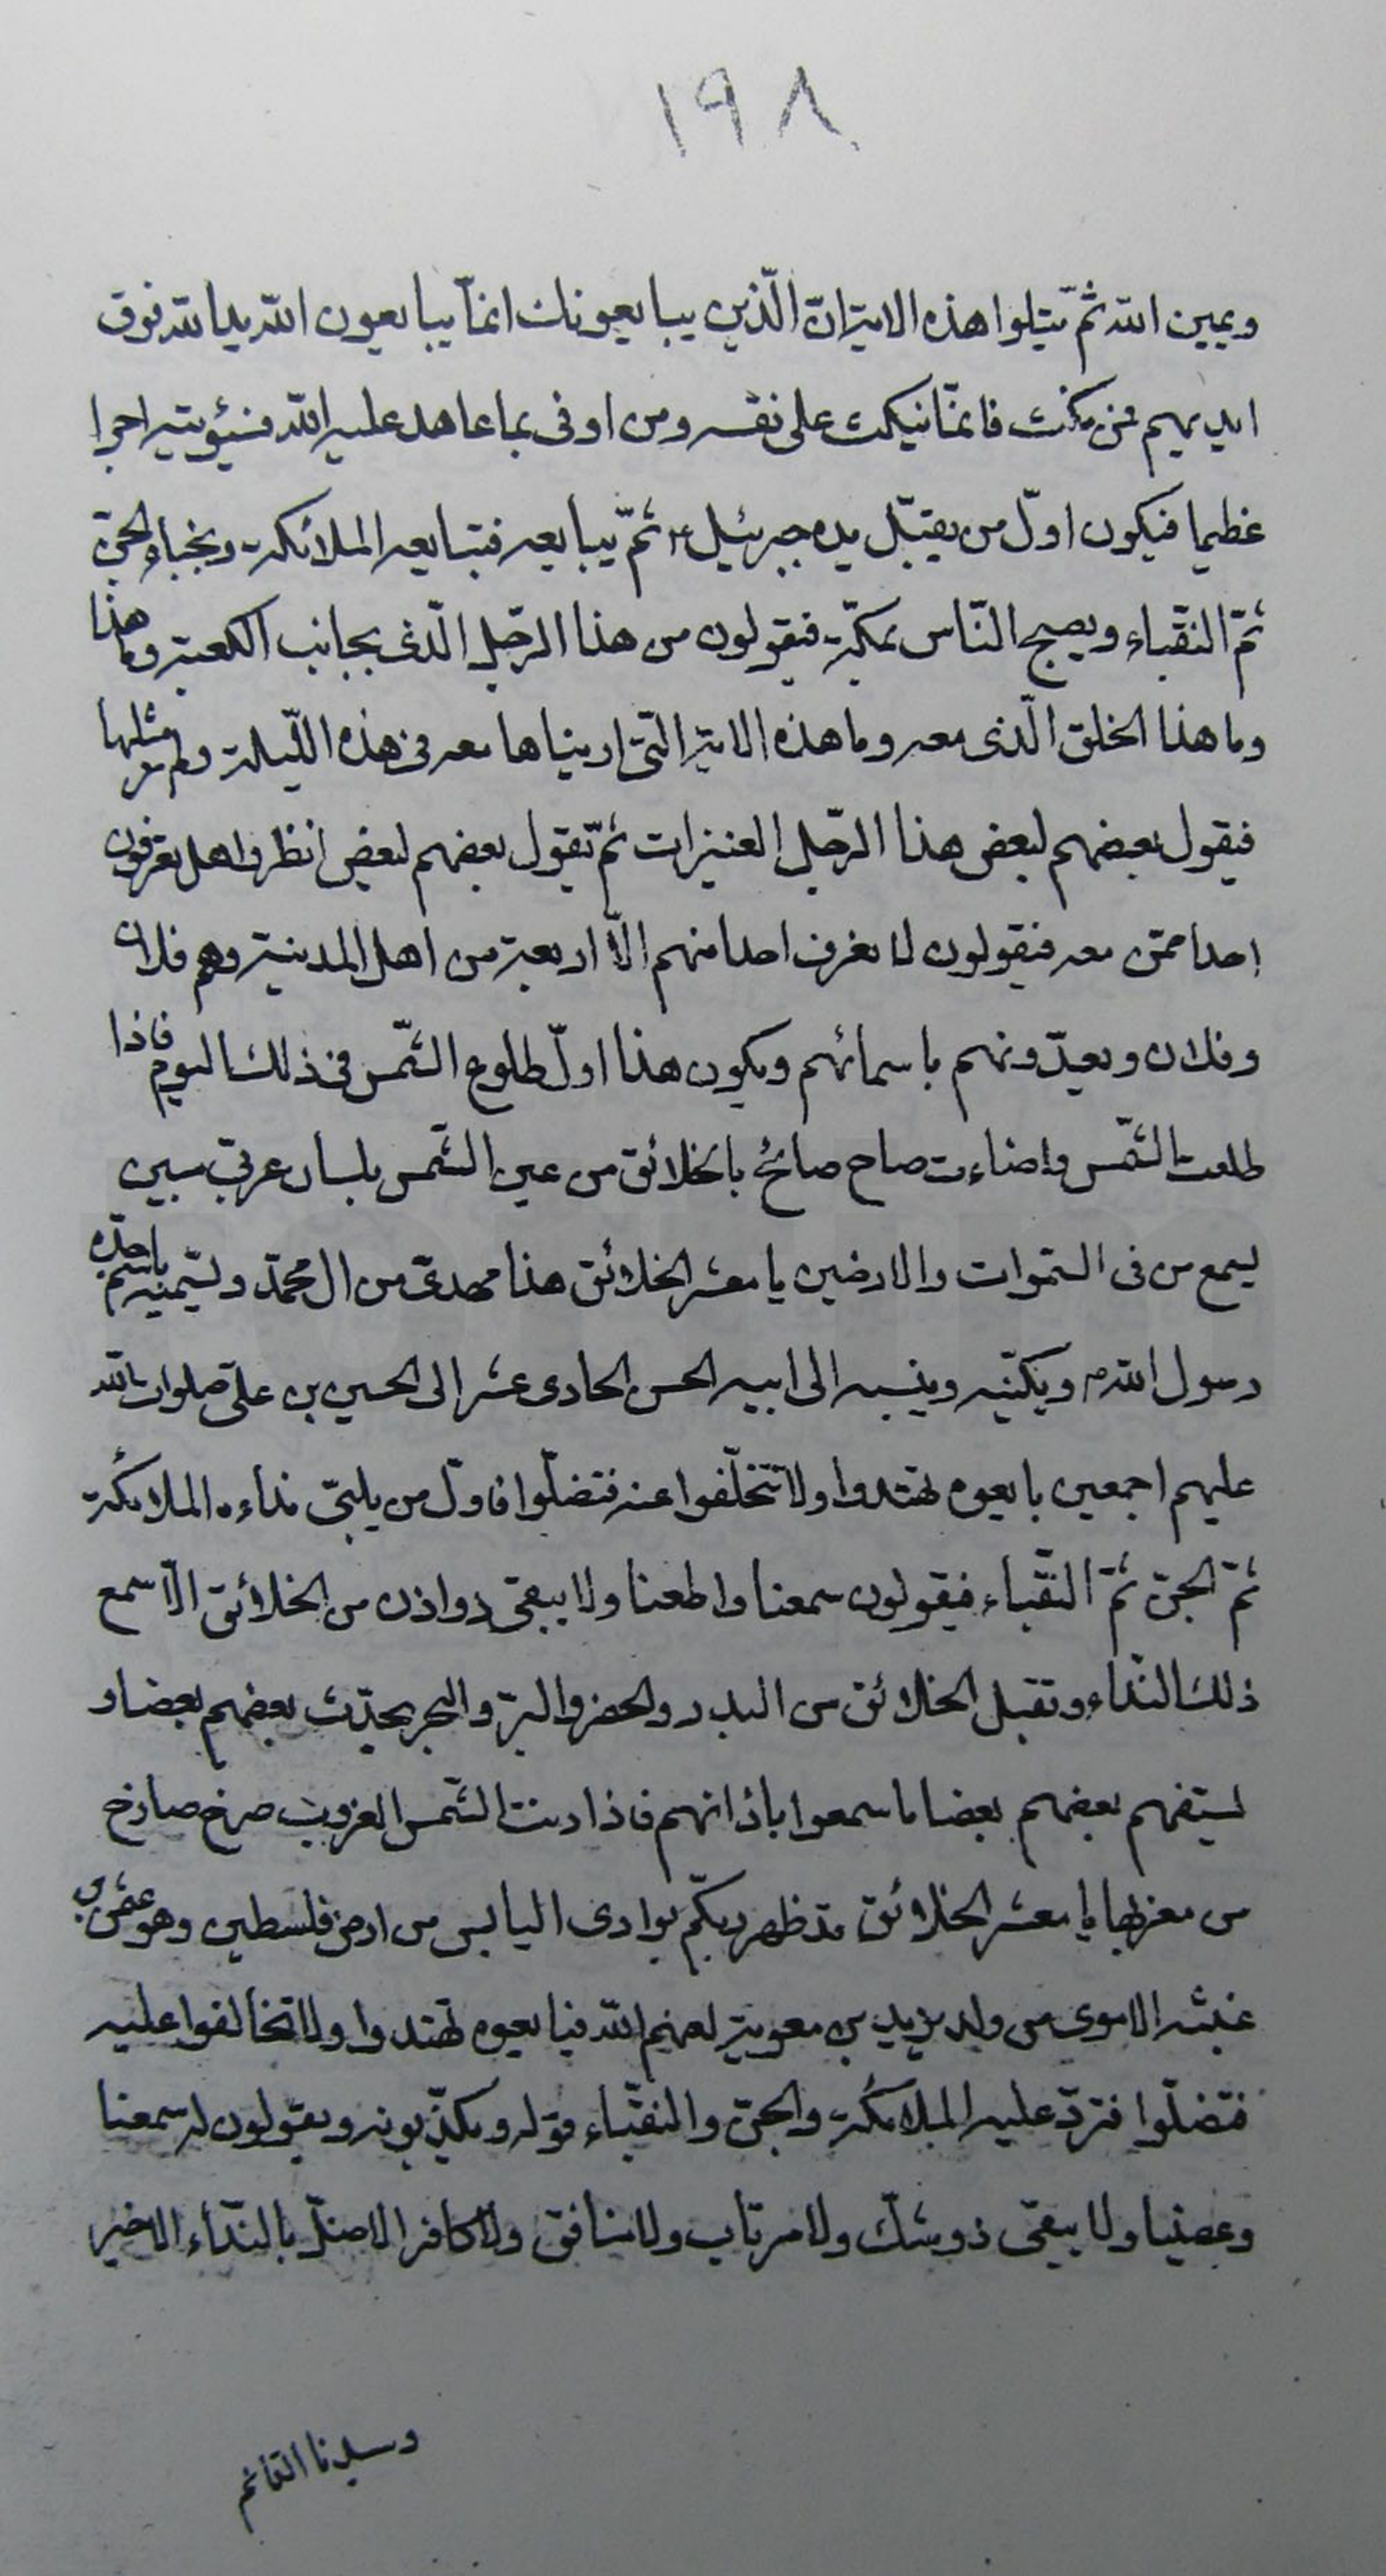 ١٩٨
ويمين الله ثم يتلوا هذه الاية ان الّذين يبايعونك انمّا يبايعون الله يد الله فوق
ايديهم فمن نكث فانمّا ينكث على نفسه ومن اوفى بما عاهد عليه الله فسيؤتيه اجرا
عظيما فيكون اوّل من يقبّل يده جبرئيل ع ثمّ يبايعه فتبايعه الملائكة ونجباء الجنّ
ثمّ النقباء ويصبح النّاس بمكّة فيقولون من هذا الرّجل الّذى بجانب الكعبة وما هذا
وما هذا الخلق الّذى معه وما هذه الاية الّتى اريناها معه فى هذه اللّيلة ولم نر مثلها
فيقول بعضهم لبعض هذا الرّجل العنيزات ثمّ يقول بعضهم لبعض انظروا هل تعرفون
احدا ممّن معه فيقولون لا نعرف احدا منهم الّا اربعة من اهل المدينة وهم فلان
وفلان ويعدّونهم باسمائهم ويكون هذا اوّل طلوع الشّمس فى ذلك اليوم فاذا
طلعت الشّمس واضاءت صاح صائح بالخلائق من عين الشّمس بلسان عربّى مبين
يسمع من فى السّموات والارضين يا معشر الخلائق هذا مهدىّ من ال محمّد ويسمّيه باسم جدّه
رسول الله ص ويكنّيه وينسبه الى ابيه الحسن الحادى عشر الى الحسين بن علىّ صلوات الله
عليهم اجمعين بايعوه تهتدوا ولا تتخلّفوا عنه فتضلّوا فاوّل من يلبّى نداءه الملائكة
ثمّ الجنّ ثمّ النّقباء فيقولون سمعنا واطعنا ولا يبقى ذو اذن من الخلائق الّا سمع
ذلك النّداء وتقبل الخلائق من البدو والحضر والبرّ والبحر يحدّث بعضهم بعضا و
يستفهم بعضهم بعضا ما سمعوا باذانهم فاذا دنت الشّمس الغروب صرخ صارخ
من مغربها يا معشر الخلائق قد ظهر ربّكم بوادى اليابس من ارض فلسطين وهو عثمن بن
عنبثه الاموى من ولد يزيد بن معوية لعنهم الله فبايعوه تهتدوا ولا تخالفوا عليه
فتضلّوا فتردّ عليه الملائكة والجنّ والنقباء قوله ويكذّبونه ويقولون له سمعنا
وعصينا ولا يبقى ذو شكّ ولا مرتاب ولا منافق ولا كافر الا ضلّ بالنّداء الاخير
وسيدنا القائم